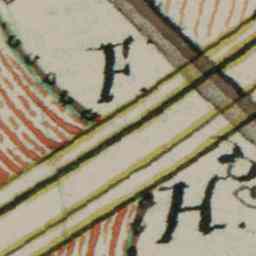 F.
H.